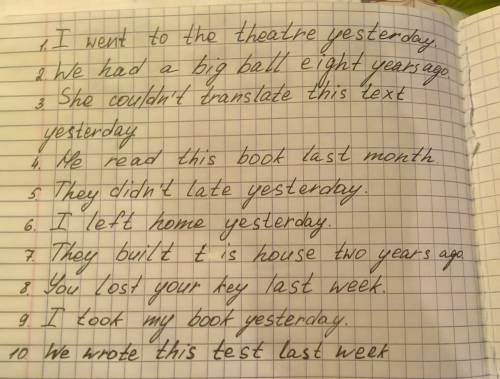 1. I went to the theatre yesterday.
2. We had a big ball eight years ago.
3. She couldn't translate this text
yesterday
4. He read this book last month.
5. They didn't late yesterday.
6. I left home yesterday.
7. They built t is house two years ago.
8. You lost your key last week.
9. I took my book yesterday.
10 We wrote this test last week